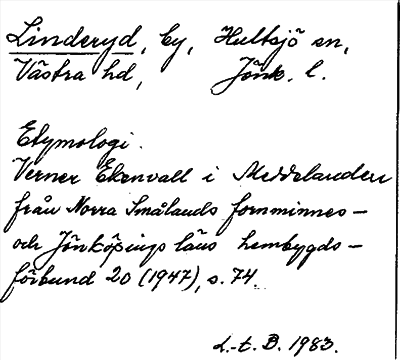 Linderyd, by, Hultsjö sn,
Västra hd, Jönk. l.
Etymologi.
Verner Ekenvall i Meddelanden
från Norra Smålands fornminnes-
och Jönköpings läns hembygds-
förbund 20 (1947), s. 74.
L.-t. B. 1983.